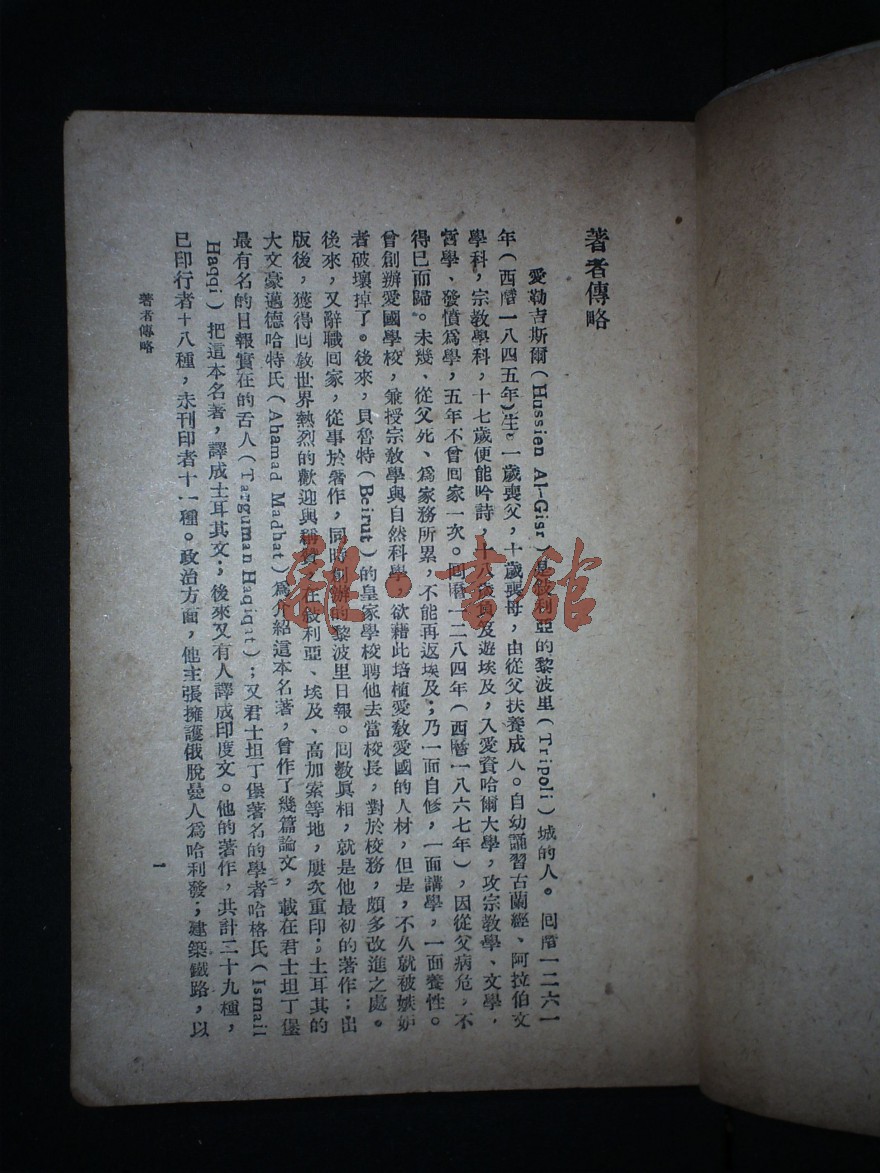 著者傳略
愛勒吉斯爾(Hussien Al-Gisr)是敍利亞的黎波里(Tripoli)城的人。囘曆一二六一
年(西曆一八四五年)生。一歲喪父,十歲喪母,由從父扶養成人。自幼誦習古蘭經、阿拉伯文
學科,宗教學科,十七歲便能吟詩,十八歲負笈遊埃及,入愛資哈爾大學,攻宗教學、文學,
哲學、發憤爲學,五年不曾囘家一次。囘曆一二八四年(西曆一八六七年),因從父病危,不
得已而歸。未幾、從父死、爲家務所累,不能再返埃及;乃一面自修,一面講學,一面養性。
曾創辦愛國學校,兼授宗教學與自然科學,欲藉此培植愛教愛國的人材,但是,不久就被嫉妒
者破壞掉了。後來,貝魯特(Beirut)的皇家學校聘他去當校長,對於校務,頗多改進之處。
後來,又辭職囘家,從事於著作,同時創辦的黎波里日報。囘教眞相,就是他最初的著作;出
版後,獲得囘教世界熱烈的歡迎與稱賞,在敍利亞、埃及、高加索等地,屢次重印;土耳其的
大文豪邁德哈特氏(Ahamad Madhat)爲介紹這本名著,曾作了幾篇論文,載在君士坦丁堡
最有名的日報實在的舌人(Targuman Haqiqat);又君士坦丁堡著名的學者哈格氏(Ismail
Haqqi)把這本名著,譯成土耳其文;後來又有人譯成印度文。他的著作,共計二十九種,
已印行者十八種,未刊印者十一種。政治方面,他主張擁護俄脫曼人爲哈利發;建築鐵路,以
著者傳略
一
雜·書館